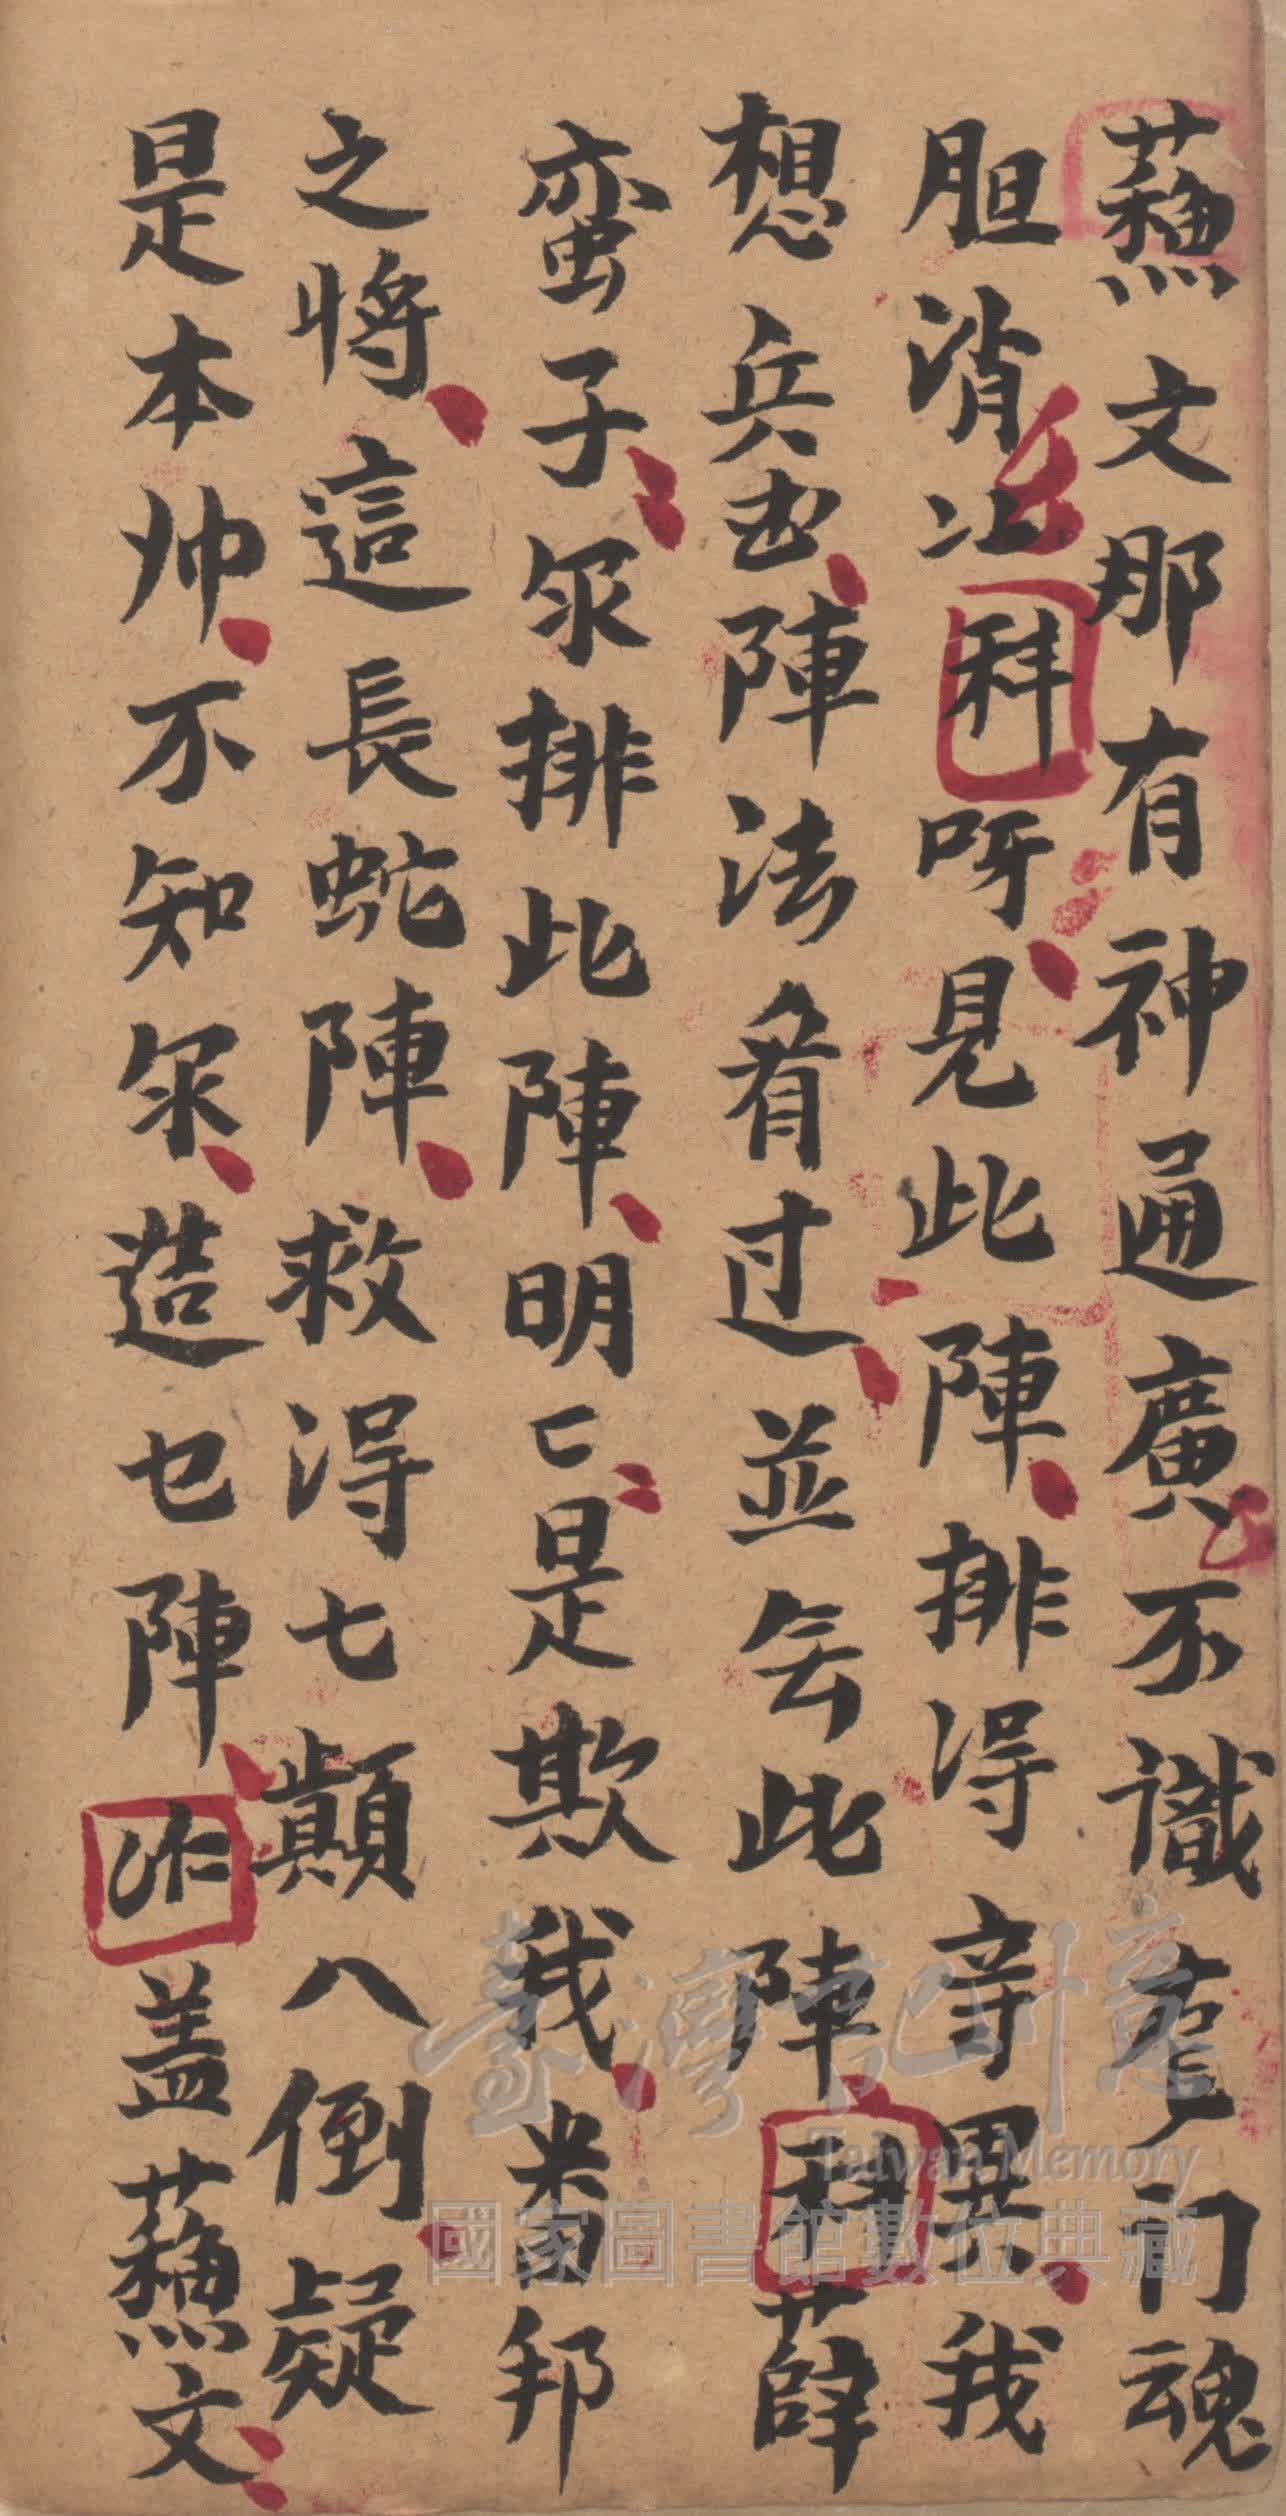 蘓文那有神通廣不識奪门魂
胆消冫科呀見此陣排得竒異我
想兵出陣法看过並无此陣科薛
蛮子尔排此陣明〻是欺我畨邦
之將這長蛇陣救得七顛八倒疑
是本帅不知尔葢乜陣咋盖蘓文
臺灣記憶
Taiwan Memory
國家圖書館數位典藏